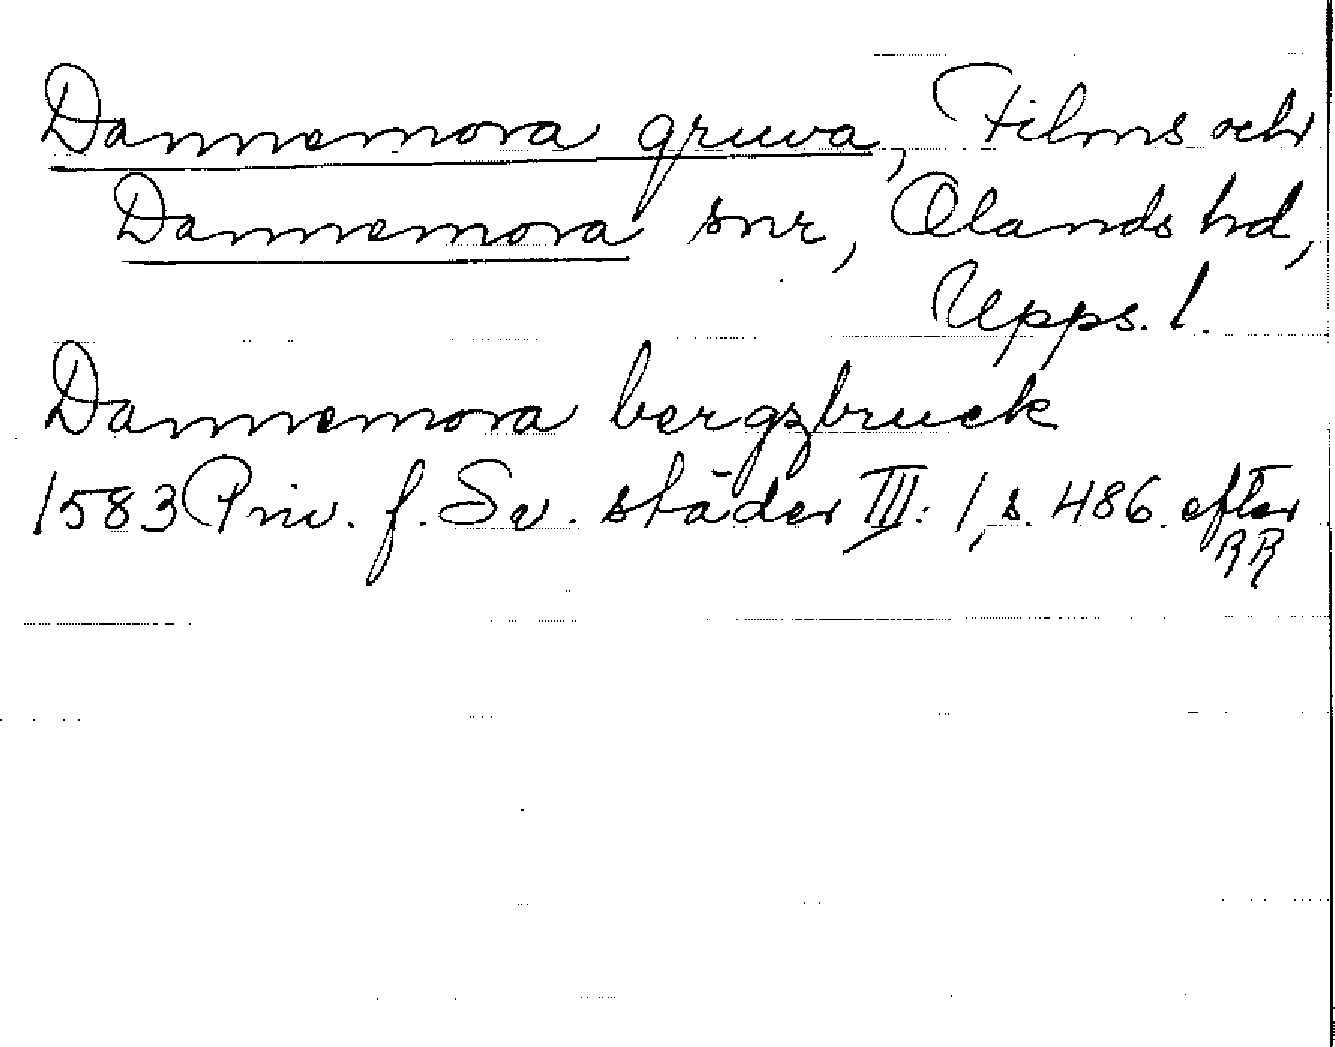 Dannemora gruva, Films och
Dannemora snr, Olands hd,
Upps. l.
Dannemora bergzbruck
1583 Priv. f. Sv. städer III: 1, s. 486. efter
RR